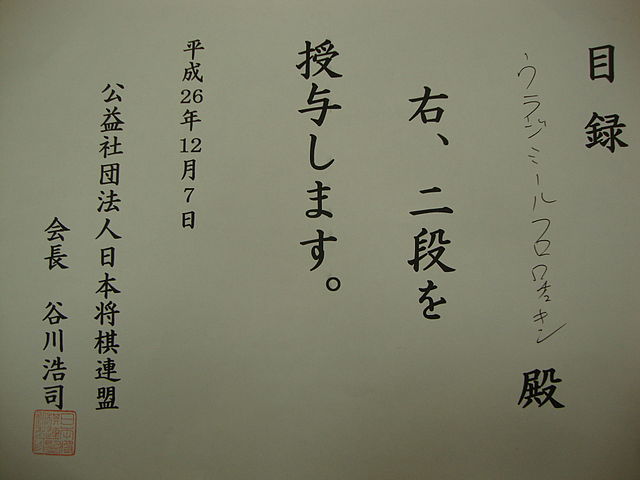 目録
ウラジミールフロロチェキン 殿
右、二段を
授与します。
平成26年12月7日
公益社団法人日本将棋連盟
会長 谷川浩司